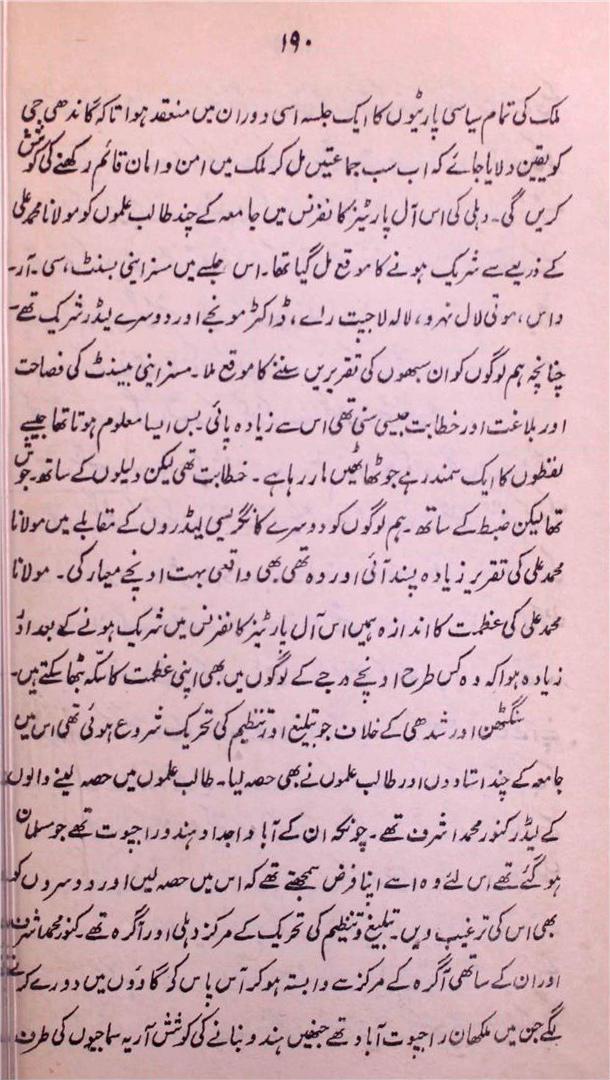 ۱۹۰
ملک کی تمام سیاسی پارٹیوں کا ایک جلسہ اسی دوران میں منعقد ہوا تاکہ گاندھی جی
کو یقین دلایا جائے کہ اب سب جماعتیں مل کر ملک میں امن و امان قائم رکھنے کی کوشش
کریں گی۔ دہلی کی اس آل پارٹیز کانفرنس میں جامعہ کے چند طالب علموں کو مولانا محمد علی
کے ذریعے سے شریک ہونے کا موقع مل گیا تھا۔ اس جلسے میں مسز اینی بسنٹ، سی۔ آر۔
داس، موتی لال نہرو، لالہ لاجپت رائے، ڈاکٹر مونجے اور دوسرے لیڈر شریک تھے۔
چنانچہ ہم لوگوں کو ان سبھوں کی تقریریں سننے کا موقع ملا۔ مسز اینی بیسنٹ کی فصاحت
اور بلاغت اور خطابت جیسی سنی تھی اس سے زیادہ پائی۔ بس ایسا معلوم ہوتا تھا جیسے
لفظوں کا ایک سمندر ہے جو ٹھاٹھیں مار رہا ہے۔ خطابت تھی لیکن دلیلوں کے ساتھ۔ جوش
تھا لیکن ضبط کے ساتھ۔ ہم لوگوں کو دوسرے کانگریسی لیڈروں کے مقابلے میں مولانا
محمد علی کی تقریر زیادہ پسند آئی اور وہ تھی بھی واقعی بہت اونچے معیار کی۔ مولانا
محمد علی کی عظمت کا اندازہ ہمیں اس آل پارٹیز کانفرنس میں شریک ہونے کے بعد اور
زیادہ ہوا کہ وہ کس طرح اونچے درجے کے لوگوں میں بھی اپنی عظمت کا سکہ بٹھا سکتے ہیں۔
سنگٹھن اور شدھی کے خلاف جو تبلیغ اور تنظیم کی تحریک شروع ہوئی تھی اس میں
جامعہ کے چند استادوں اور طالب علموں نے بھی حصہ لیا۔ طالب علموں میں حصہ لینے والوں
کے لیڈر کنور محمد اشرف تھے۔ چونکہ ان کے آبا و اجداد ہندو راجپوت تھے جو مسلمان
ہو گئے تھے اس لئے وہ اسے اپنا فرض سمجھتے تھے کہ اس میں حصہ لیں اور دوسروں کو
بھی اس کی ترغیب دیں۔ تبلیغ و تنظیم کی تحریک کے مرکز دہلی اور آگرہ تھے۔ کنور محمد اشرف
اور ان کے ساتھی آگرہ کے مرکز سے وابستہ ہو کر آس پاس کے گاؤوں میں دورے کرنے
لگے جن میں ملکھان راجپوت آباد تھے جنھیں ہندو بنانے کی کوشش آریہ سماجیوں کی طرف